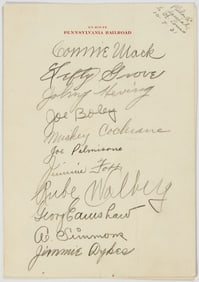 EN ROUTE
PENNSYLVANIA RAILROAD
Connie Mack
Lefty Grove
Johny Heving
Joe Boley
Mickey Cochrane
Joe Palmisano
Jimmie Foxx
Rube Walberg
Geo Earnshaw
A. Simmons
Jimmie Dykes